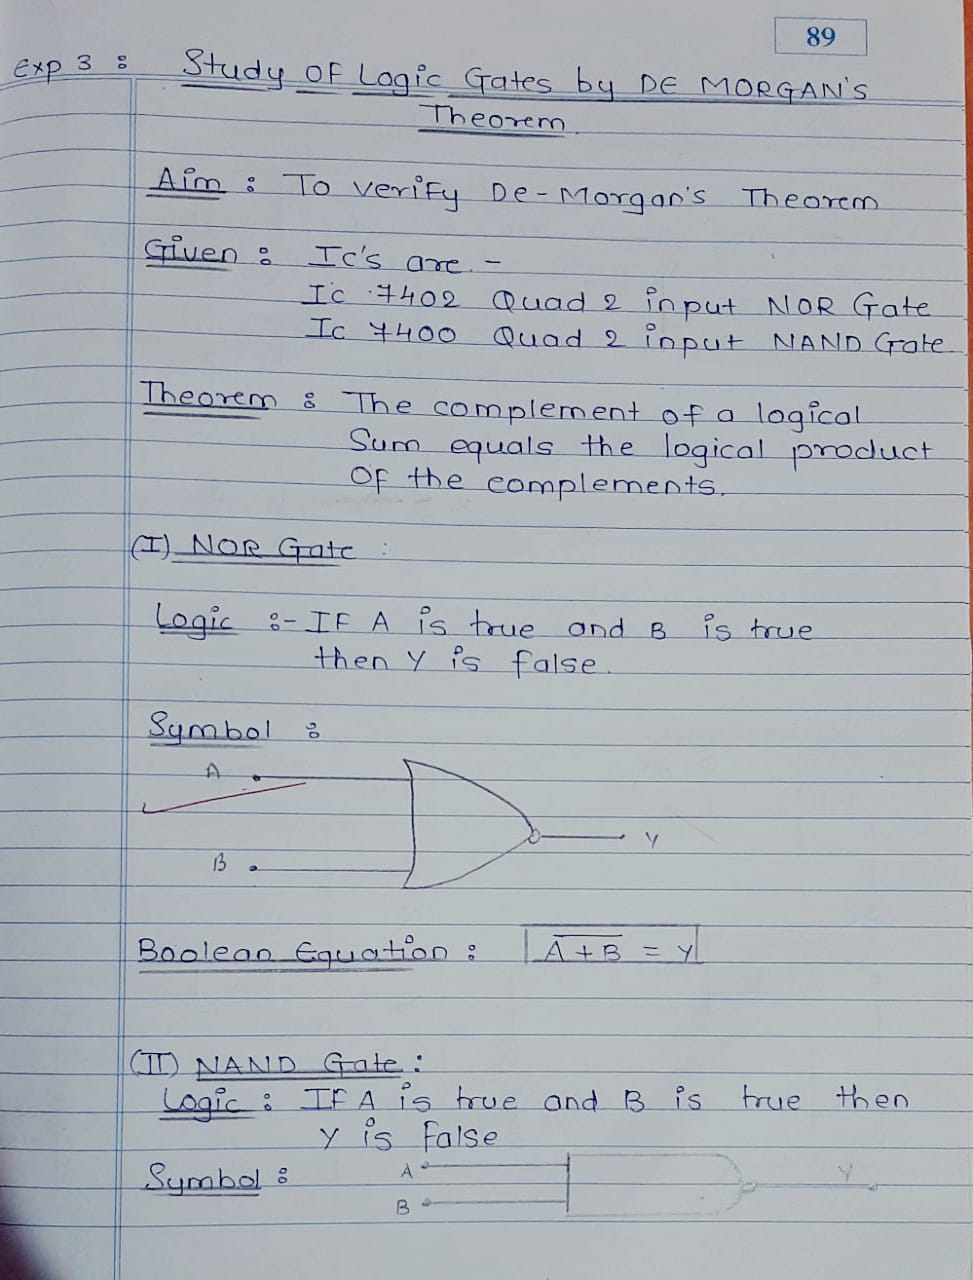 89
Exp 3 : Study OF Logic Gates by DE MORGAN'S
Theorem.
Aim : To verify De-Morgan's Theorem
Given : Ic's are. -
Ic 7402 Quad 2 input NOR Gate
Ic 7400 Quad 2 input NAND Gate
Theorem : The complement of a logical
Sum equals the logical product
OF the complements.
(I) NOR Gate :
Logic :- IF A is true and B is true
then Y is false.
Symbol :
A
Y
B
Boolean Equation : A̅ ̅+̅ ̅B̅ = Y
(II) NAND Gate :
Logic : IF A is true and B is true then
Y is False
Symbol : A Y
B